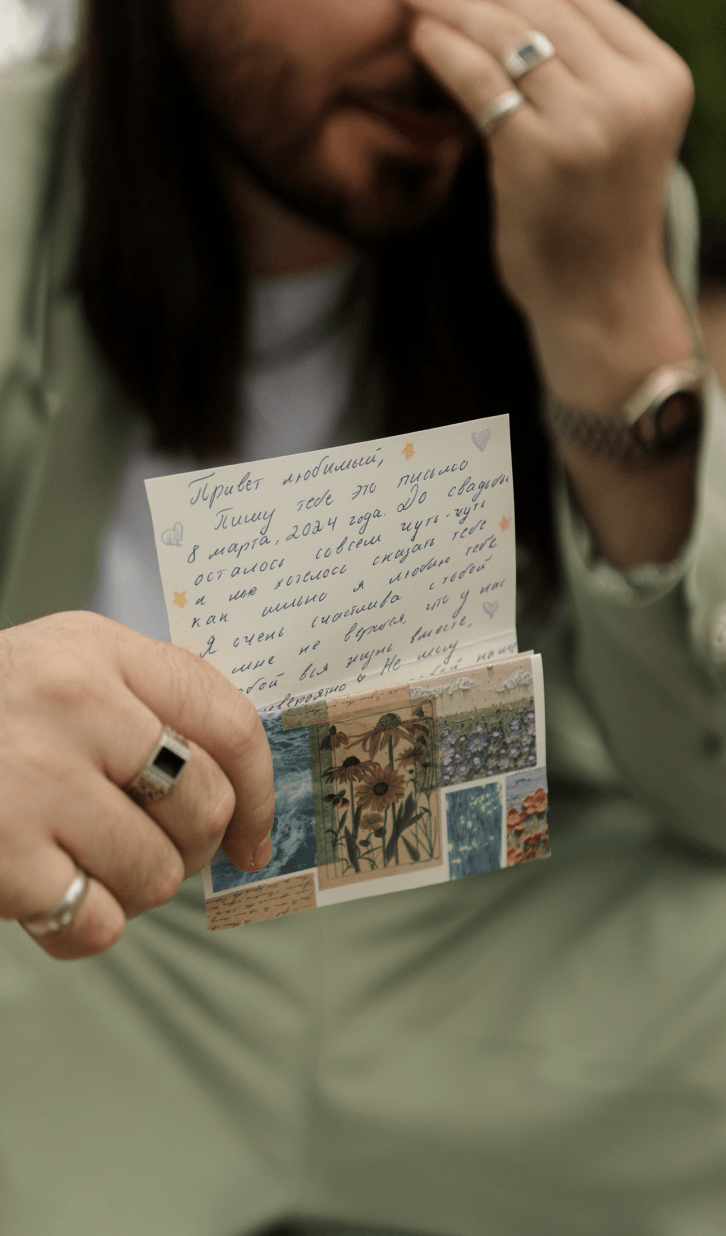 Привет любимый,
Пишу тебе это письмо
8 марта, 2024 года. До свадьбы
осталось совсем чуть-чуть
и мне хотелось сказать тебе
как сильно я люблю тебя.
Я очень счастлива с тобой
мне не верится, что у нас
собой вся жизнь вместе.
невероятно Не могу